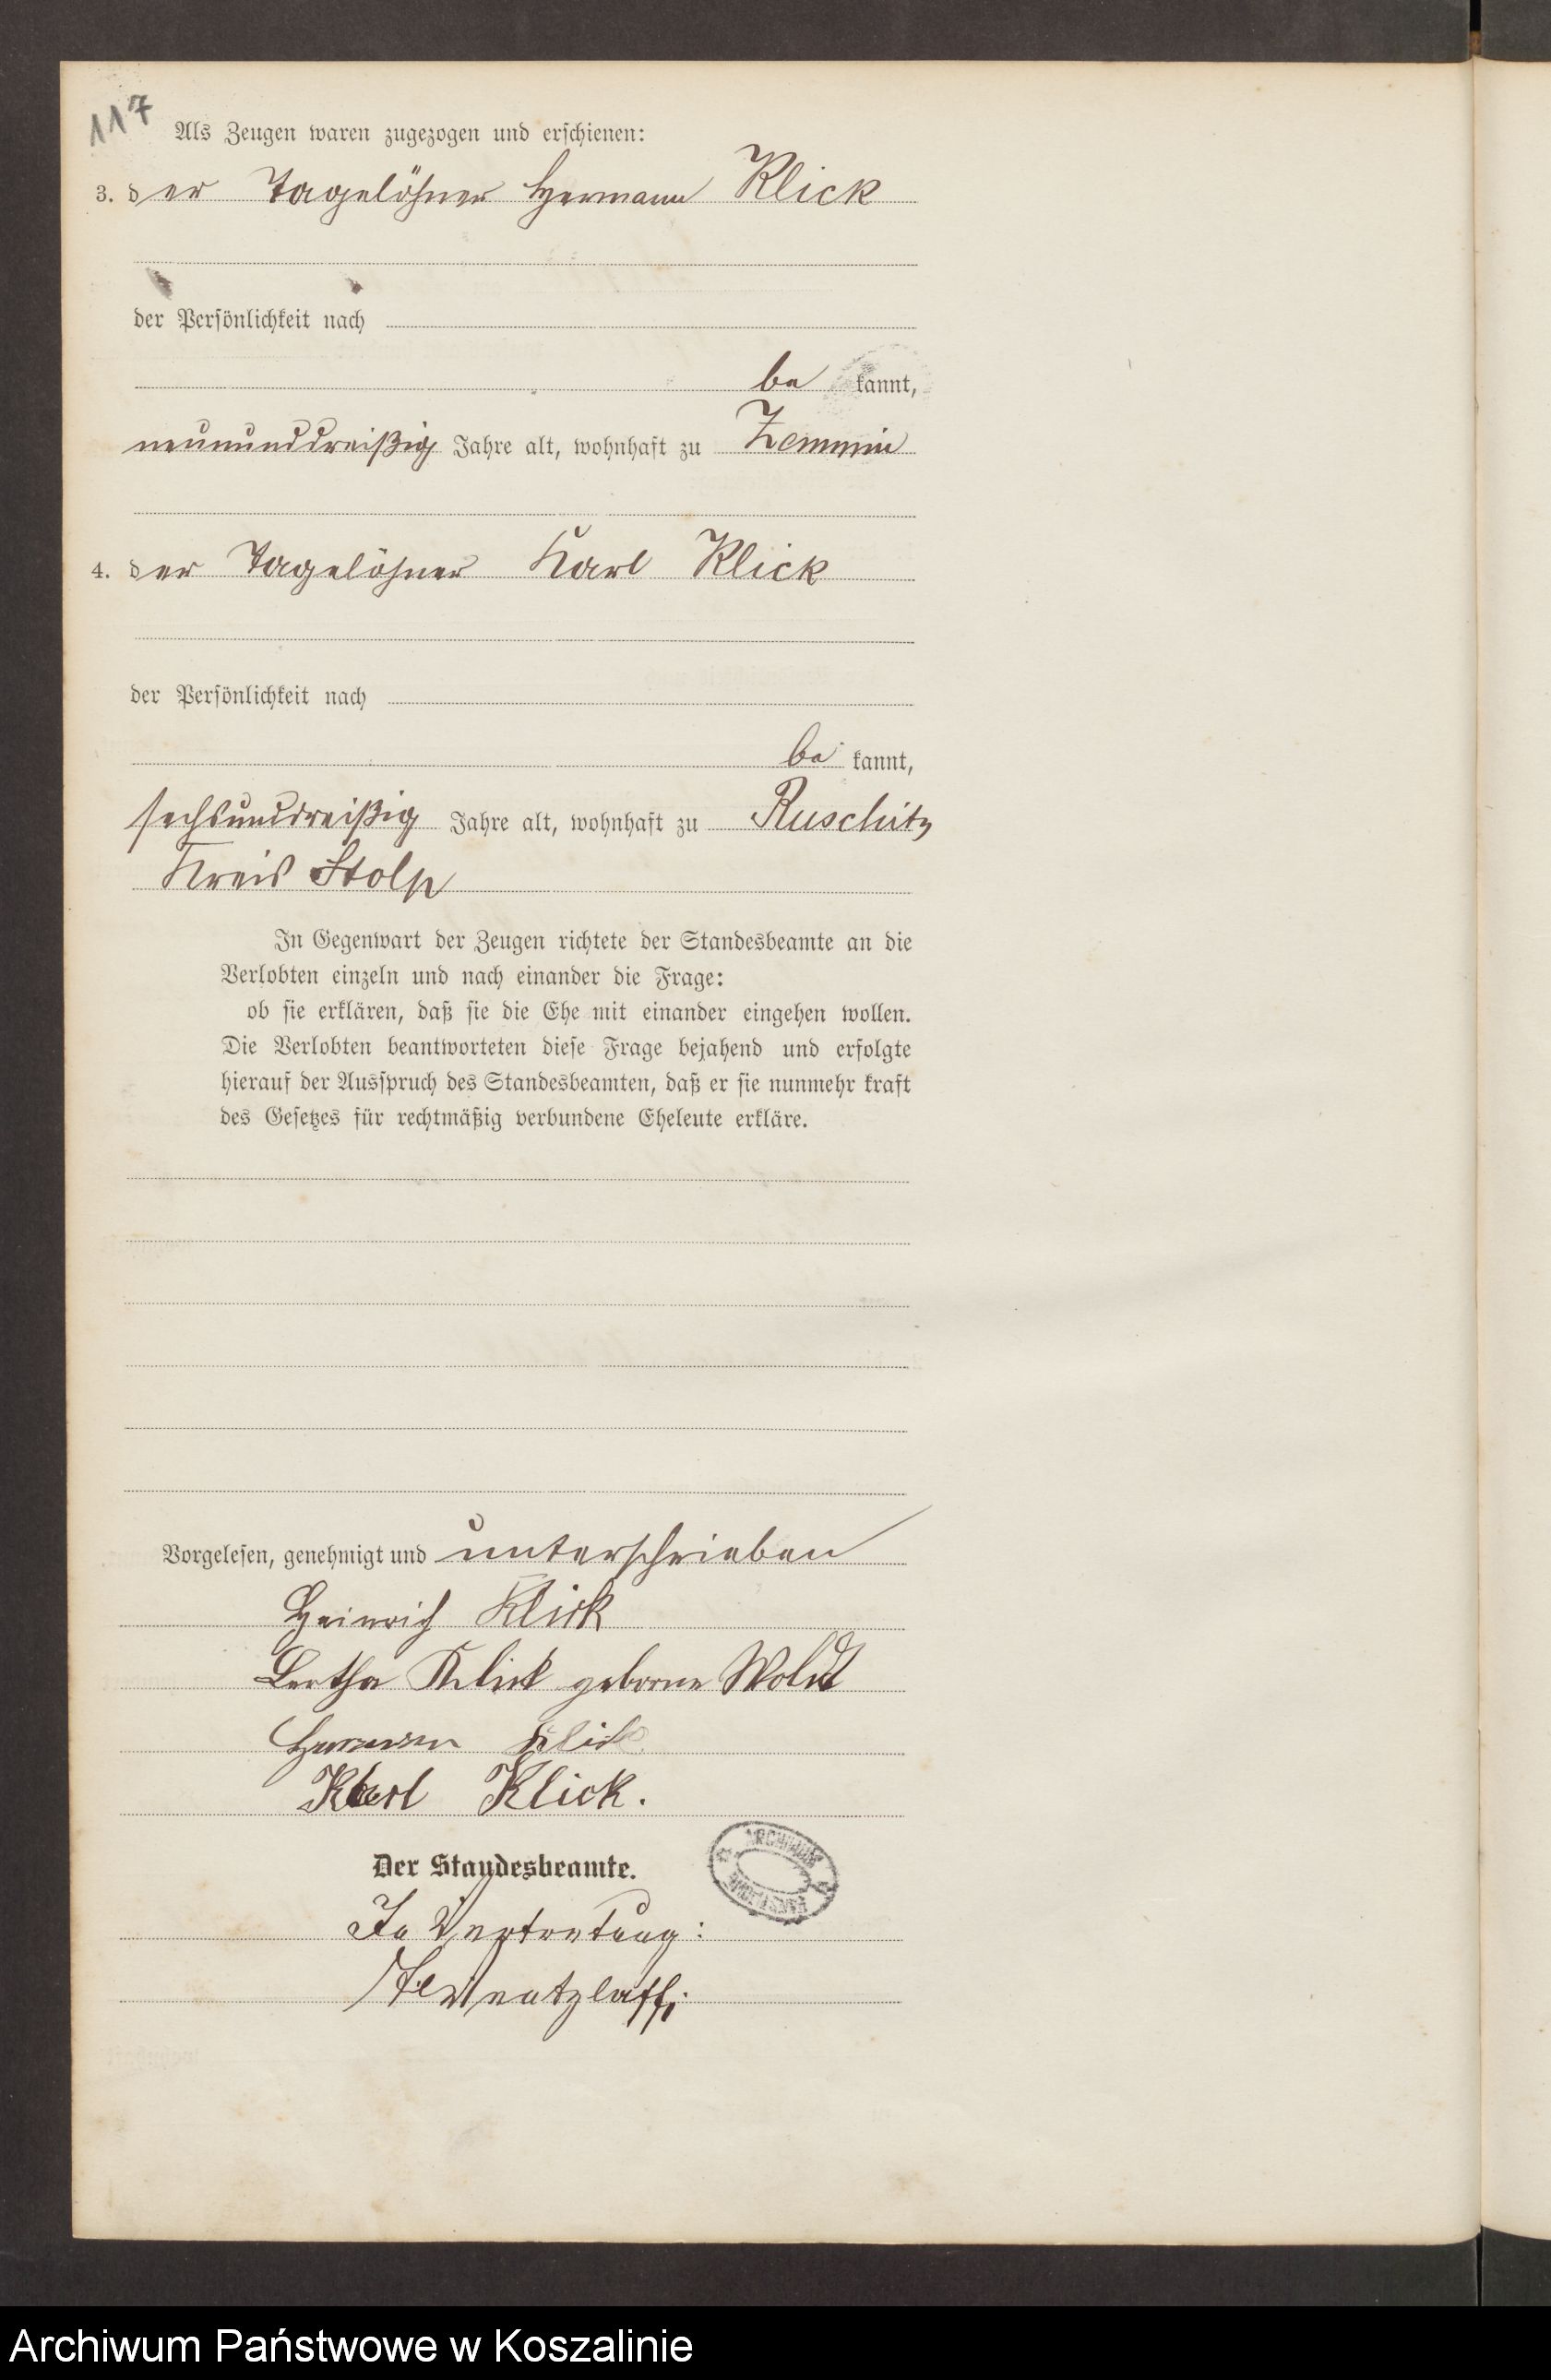 117
Als Zeugen waren zugezogen und erschienen:
3. der Tagelöhner Hermann Klick
der Persönlichkeit nach
be kannt,
neununddreißig Jahre alt, wohnhaft zu Zemmin
4. der Tagelöhner Karl Klick
der Persönlichkeit nach
be kannt,
sechsunddreißig Jahre alt, wohnhaft zu Ruschütz
Kreis Stolp
In Gegenwart der Zeugen richtete der Standesbeamte an die
Verlobten einzeln und nach einander die Frage:
ob sie erklären, daß sie die Ehe mit einander eingehen wollen.
Die Verlobten beantworteten diese Frage bejahend und erfolgte
hierauf der Ausspruch des Standesbeamten, daß er sie nunmehr kraft
des Gesetzes für rechtmäßig verbundene Eheleute erkläre.
Vorgelesen, genehmigt und unterschrieben
Heinrich Klick
Bertha Klick geborne Woldt
Hermann Klick
Karl Klick.
Der Standesbeamte.
In Vertretung:
ARCHIWUM
Archiwum Państwowe w Koszalinie